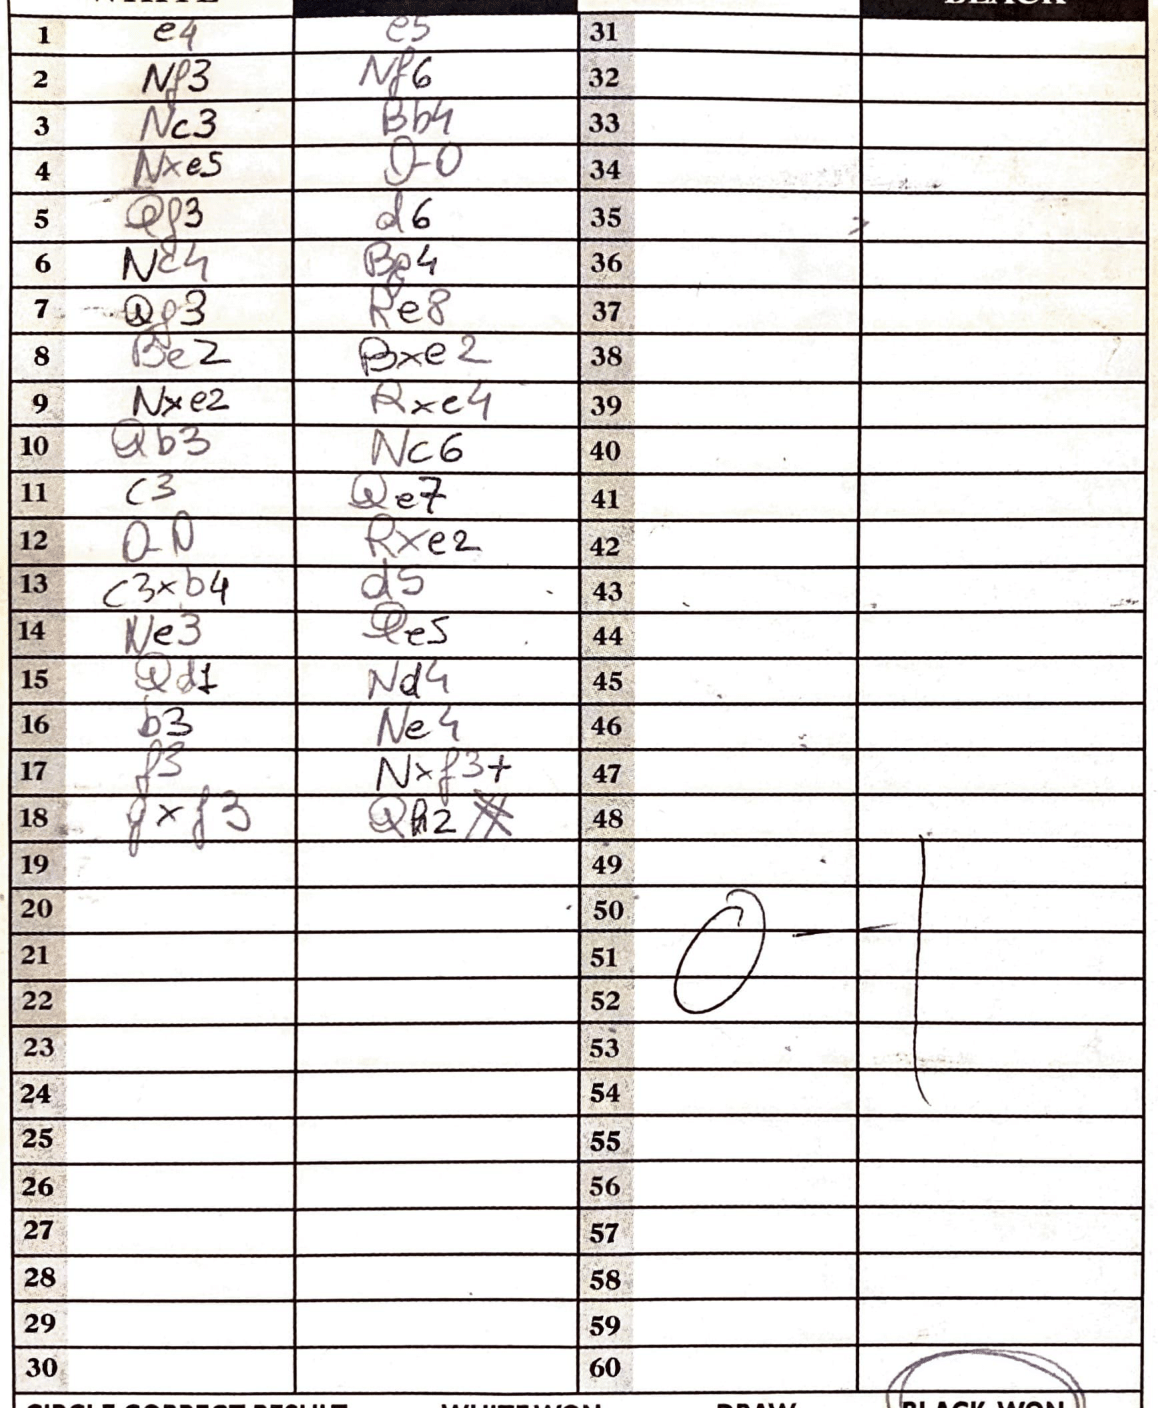 1 e4 e5 31
2 Nf3 Nf6 32
3 Nc3 Bb4 33
4 Nxe5 0-0 34
5 Qf3 d6 35
6 Nc4 Bg4 36
7 Qg3 Re8 37
8 Be2 Bxe2 38
9 Nxe2 Rxe4 39
10 Qb3 Nc6 40
11 c3 Qe7 41
12 0-0 Rxe2 42
13 c3xb4 d5 43
14 Ne3 Qe5 44
15 Qd1 Nd4 45
16 b3 Ne4 46
17 f3 Nxf3+ 47
18 gxf3 Qh2# 48
19 49
20 50
21 51
22 52
23 53
24 54
25 55
26 56
27 57
28 58
29 59
30 60
0-1
CIRCLE CORRECT RESULT WHITE WON DRAW BLACK WON